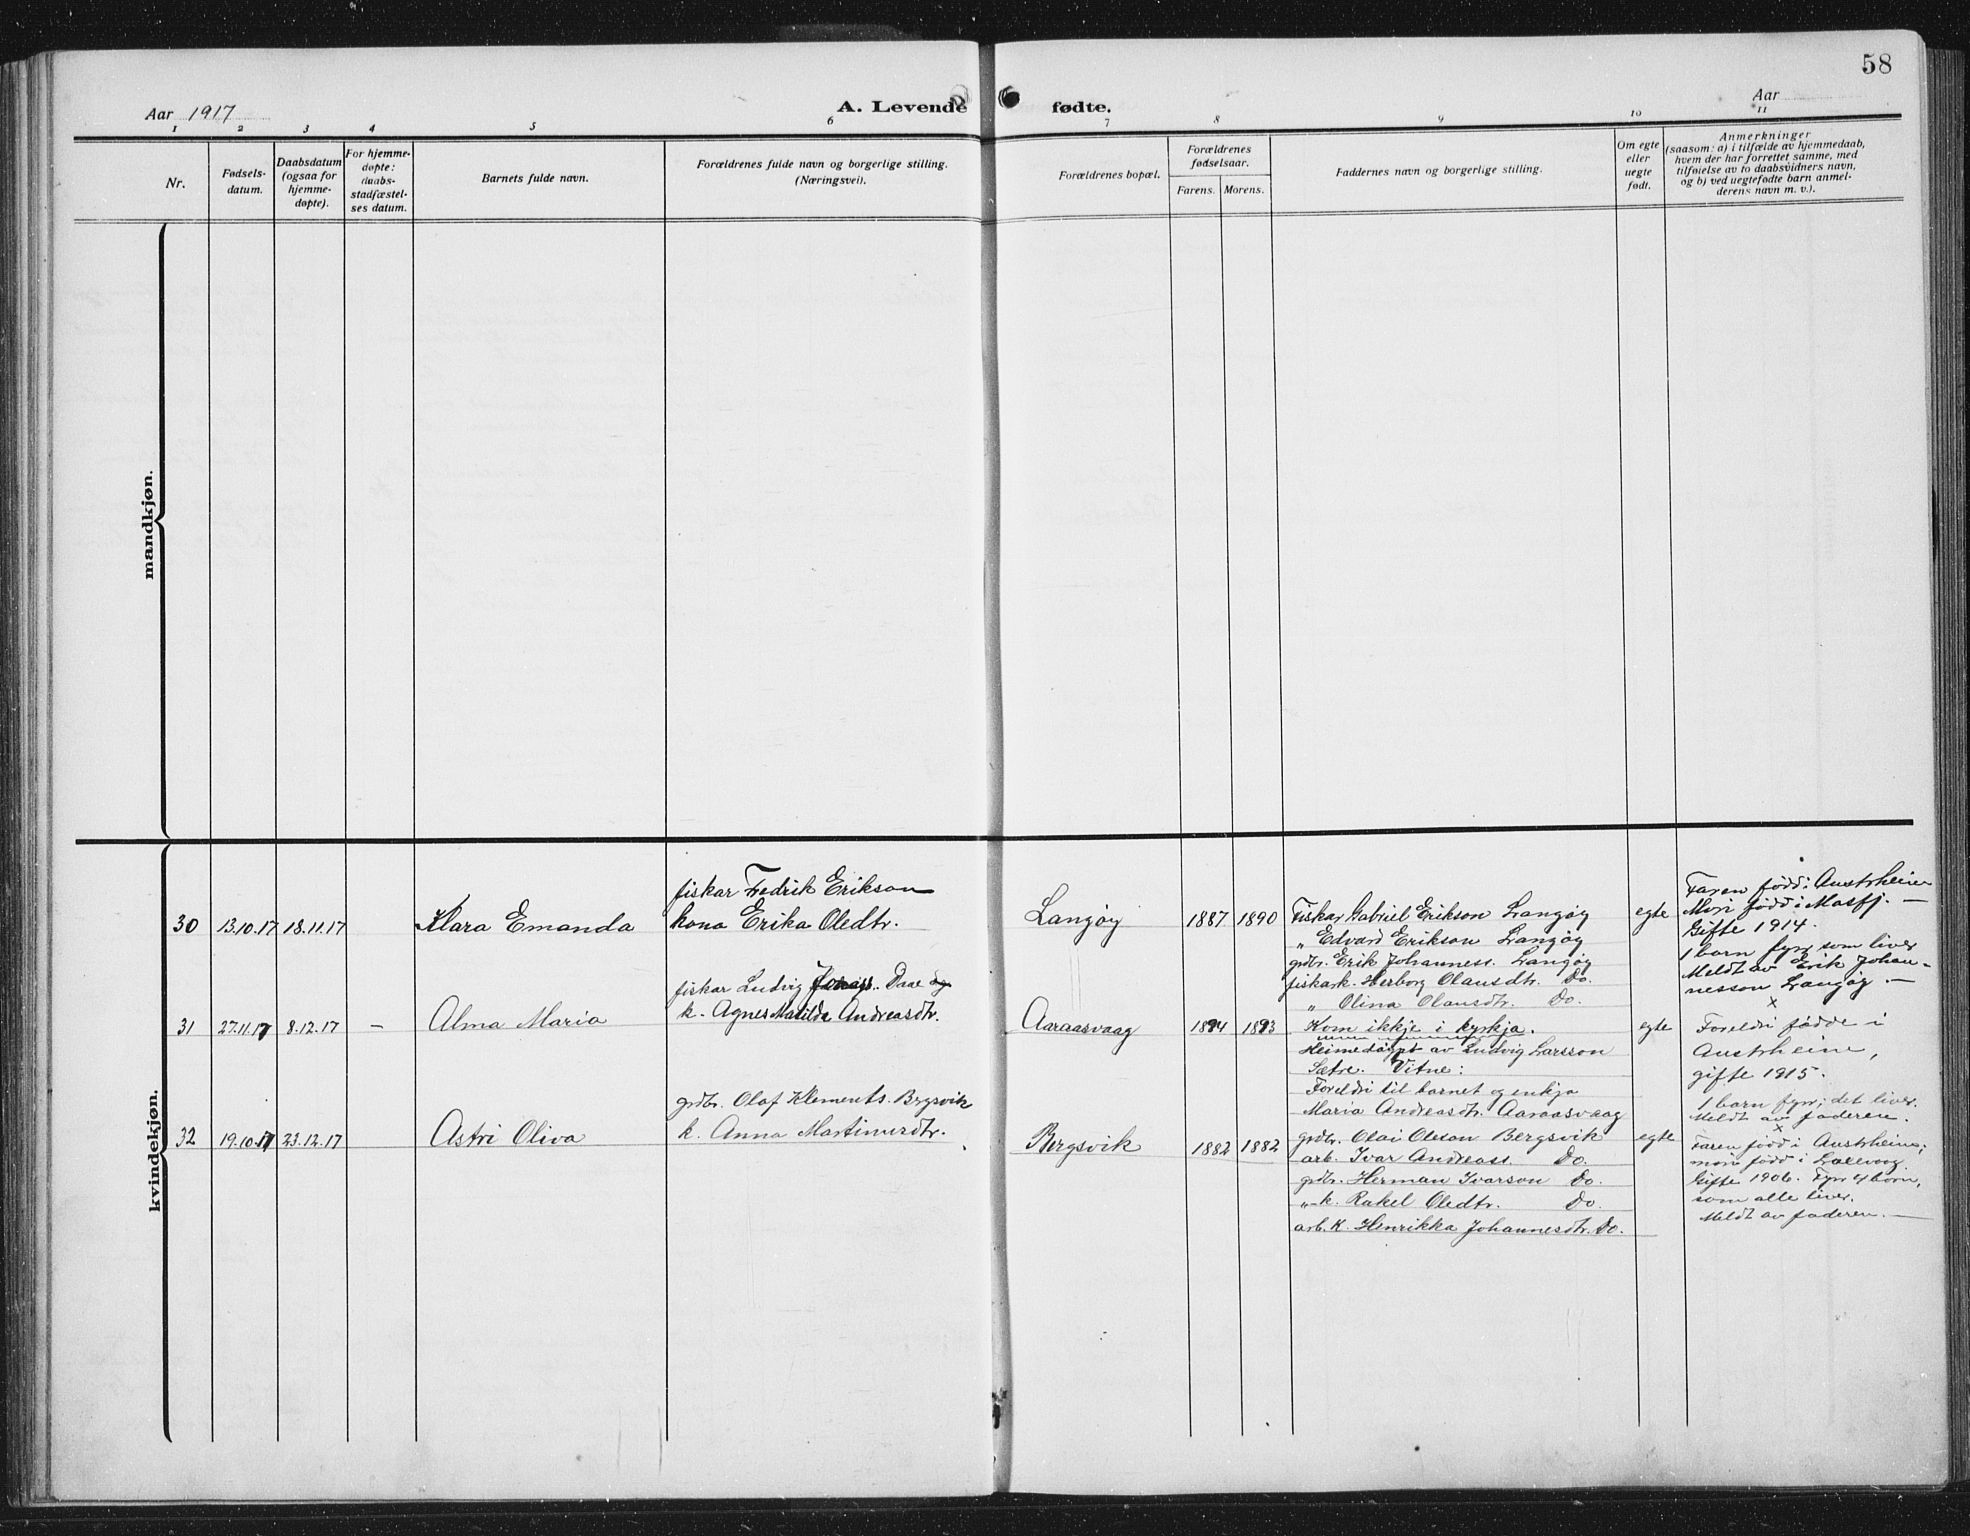 58
Aar 1917
A. Levende fødte.
Aar
1 2 3 4 5 6 7 8 9 10 11
Nr.
Fødsels-
datum.
Daabsdatum
(ogsaa for
hjemme-
døpte).
For hjemme-
døpte:
daabs-
stadfæstel-
ses datum.
Barnets fulde navn.
Forældrenes fulde navn og borgerlige stilling.
(Næringsvei).
Forældrenes bopæl.
Forældrenes
fødselsaar.
Farens. Morens.
Faddernes navn og borgerlige stilling.
Om egte
eller
uegte
født.
Anmerkninger
(saasom: a) i tilfælde av hjemmedaab,
hvem der har forrettet samme, med
tilføielse av to daabsvidners navn,
og b) ved uegtefødte barn anmel-
derens navn m. v.).
mandkjøn.
kvindekjøn.
30 13.10.17 18.11.17
Klara Emanda
fiskar Fredrik Erikson
kona Erika Oledtr.
Langøy
1887 1890
Fiskar Gabriel Erikson Langøy
„ Edvard Erikson Langøy
grdbr. Erik Johanness. Langøy
fiskark. Herborg Olausdtr. Do.
„ Olina Olausdtr. Do.
egte
Faren fødd i Austrheim
Mori fødd i Masfj. —
Gifte 1914.
1 barn fyrr som liver
Meldt av Erik Johan-
nesson Langøy. —
31 27.11.17 8.12.17 –
Alma Maria
fiskar Ludvig Jonass. Daae og
k. Agnes Matilda Andreasdtr.
Aaraasvaag
1894 1893
Kom ikkje i kyrkja.
Heimedøypt av Ludvig Larsson
Sætre. Vitne:
Foreldri til barnet og enkja
Maria Andreasdtr. Aaraasvaag
egte
x
Foreldri fødde i
Austrheim,
gifte 1915.
1 barn fyrr; det liver.
Meldt av faderen.
32 19.10.17 23.12.17
Astri Oliva
grdbr. Olaf Klements. Bergsvik
k. Anna Martinusdtr.
Bergsvik
1882 1882
grdbr. Olai Oleson Bergsvik
arb. Ivar Andreass. Do.
grdbr. Herman Ivarson Do.
„ k. Rakel Oledtr. Do.
arb. k. Henrikka Johannesdtr. Do.
egte
x
Faren fødd i Austrheim;
mori fødd i
Gifte 1906. Fyrr 4 born,
som alle liver.
Meldt av faderen. —